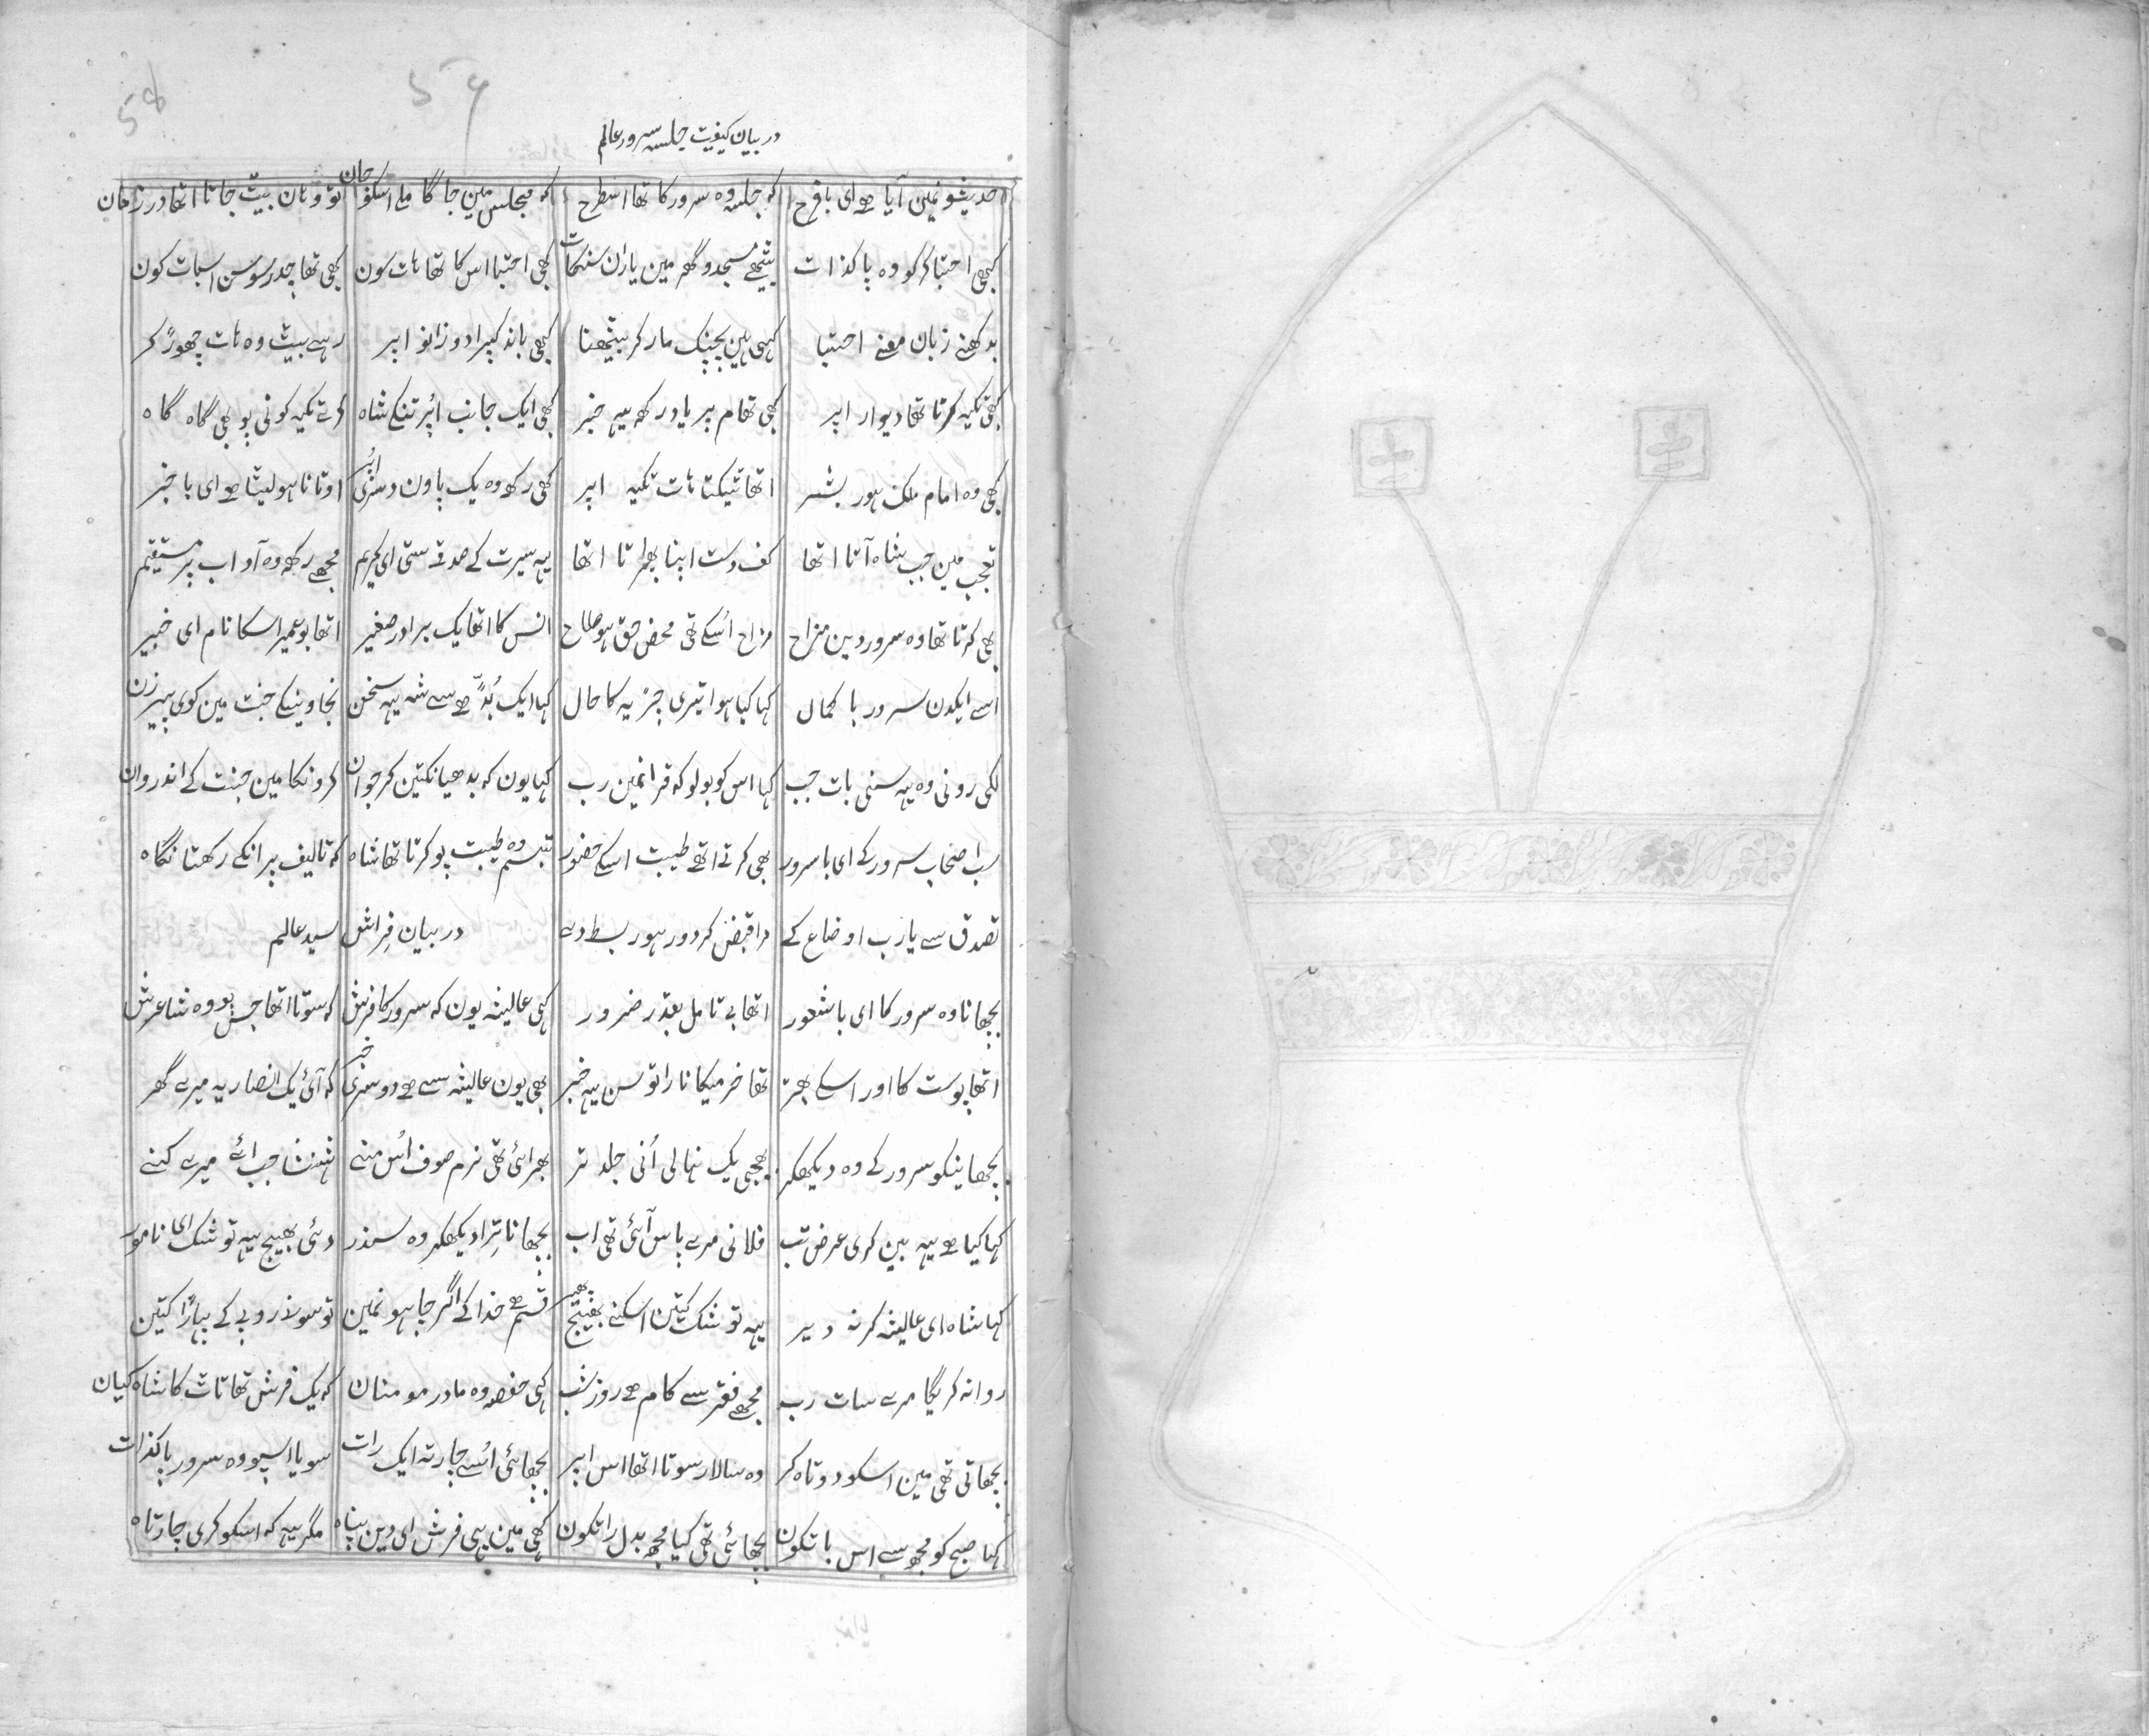 در بیان کیفیت جلسہ سرور عالم
حدیثونمین آیا ھے ای بافرح کہ جلسہ وہ سرور کا تھا اسطرح کہ مجلس مین جا گا ملے اسکو جان تو وہان بیٹ جاتا اتھا در زمان
کبھی احتبا کر کو وہ پاکذات بیٹھے مسجد و گھر مین یاران سنگات کبھی احتبا اس کا تھا ہات سون کبھی تھا چدر سو سن اسبات کون
بد کھنے زبان معنے احتبا کہی ہین بچنپک مار کر بیٹھنا کبھی باند کپرا دو زانو اپر رہے بیٹ وہ ہات چھوڑ کر
کبھی تکیہ کرتا تھا دیوار اپر کبھی تھام پر یاد رکھ یہہ خبر کبھی ایک جانب اپر تنکے شاہ کرتے تکیہ کونی پو بھی گاہ گاہ
کبھی وہ امام ملک ہور بشر اتھا ٹیکتا ہات تکیہ اپر کبھی رکھ وہ یک پاون دسری اپر اوتانا ہو لیٹا ھے ای با خبر
تعجب مین جب شاہ آتا اتھا کف دست اپنا پھراتا اتھا یہہ سیرت کے صدقے ستی ای کریم مجھے رکھ وہ آداب پر مستقیم
بھی کرتا تھا وہ سرور دین مزاح مزاح اسکے تھی محض حق ہور صلاح انس کا اتھا یک برادر صغیر اتھا بو عمیر اسکا نام ای خبیر
اسے ایکدن سرور با کمال کہا کیا ہوا تیری چڑیہ کا حال کہا ایک بڈی سے شہ یہہ سخن نجاوینگے جنت مین کوی پیرزن
لگی رونی وہ یہہ سنی بات جب کہا اس کو بولو کہ قرانمین رب کہا یون کہ بدھیانکتین کر جوان کرونگا مین جنت کے اندر وان
سب اصحاب سرور کے ای با سرور بھی کرتے اتھے طیبت اسکے حضور تبسم وہ طیبت پو کرتا تھا شاہ کہ تالیف پر انکے رکھتا نگاہ
تصدق سے یارب اوضاع کے مرا قبض کر دور ہور بسط دے در بیان فراش سید عالم
بچھانا وہ سرور کا ای با شعور اتھا بے تامل بقدر ضرور کہی عایشہ یون کہ سرور کا فرش کہ سوتا اتھا جس پو وہ شاہ عرش
اتھا پوست کا اور اسکے بھتر تھا خرمیکا نارا تو سن یہہ خبر بھی یون عایشہ سے ھے دوسری خبر کہ آئی یک انصاریہ میرے گھر
بچھاینکو سرور کے وہ دیکھکر بھجی یک نہالی اُنی جلد تر بھرائی تھی نرم صوف اُس منے شہنشا جب ائے میرے کنے
کہا کیا ھے یہہ بین کری عرض تب فلانی مرے پاس آئی تھی اب بچھانا ترا دیکھکر وہ سندر دئی بھیج یہہ توشک ای نامور
کہا شاہ ای عایشہ کر نہ دیر یہہ توشک کتین اسکنے بھیج پھیر قسم ھے خدا کے اگر چاہو نمین تو سونے روپے کے پہاڑا کتین
روانہ کریگا مرے سات رب مجھے فقر سے کام ھے روز شب کہی حفصہ وہ مادر مومنان کہ یک فرش تھا تاٹ کا شاہ کیان
بچھاتی تھی مین اسکو دوتاہ کر وہ سالار سوتا اتھا اس اپر بچھائی اُسے چارتہ ایک رات سویا اسپو وہ سرور پاکذات
کہا صبح کو مجھ سے اس باتکون بچھائی تھی کیا مجھ بدل راتکون کہی مین یہی فرش ای دین پناہ مگر یہہ کہ اسکو کری چارتاہ